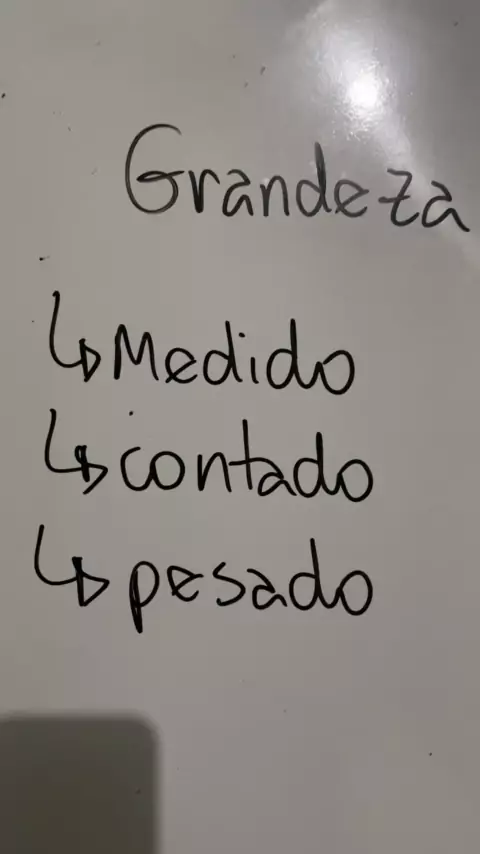 Grandeza
↳ Medido
↳ contado
↳ pesado